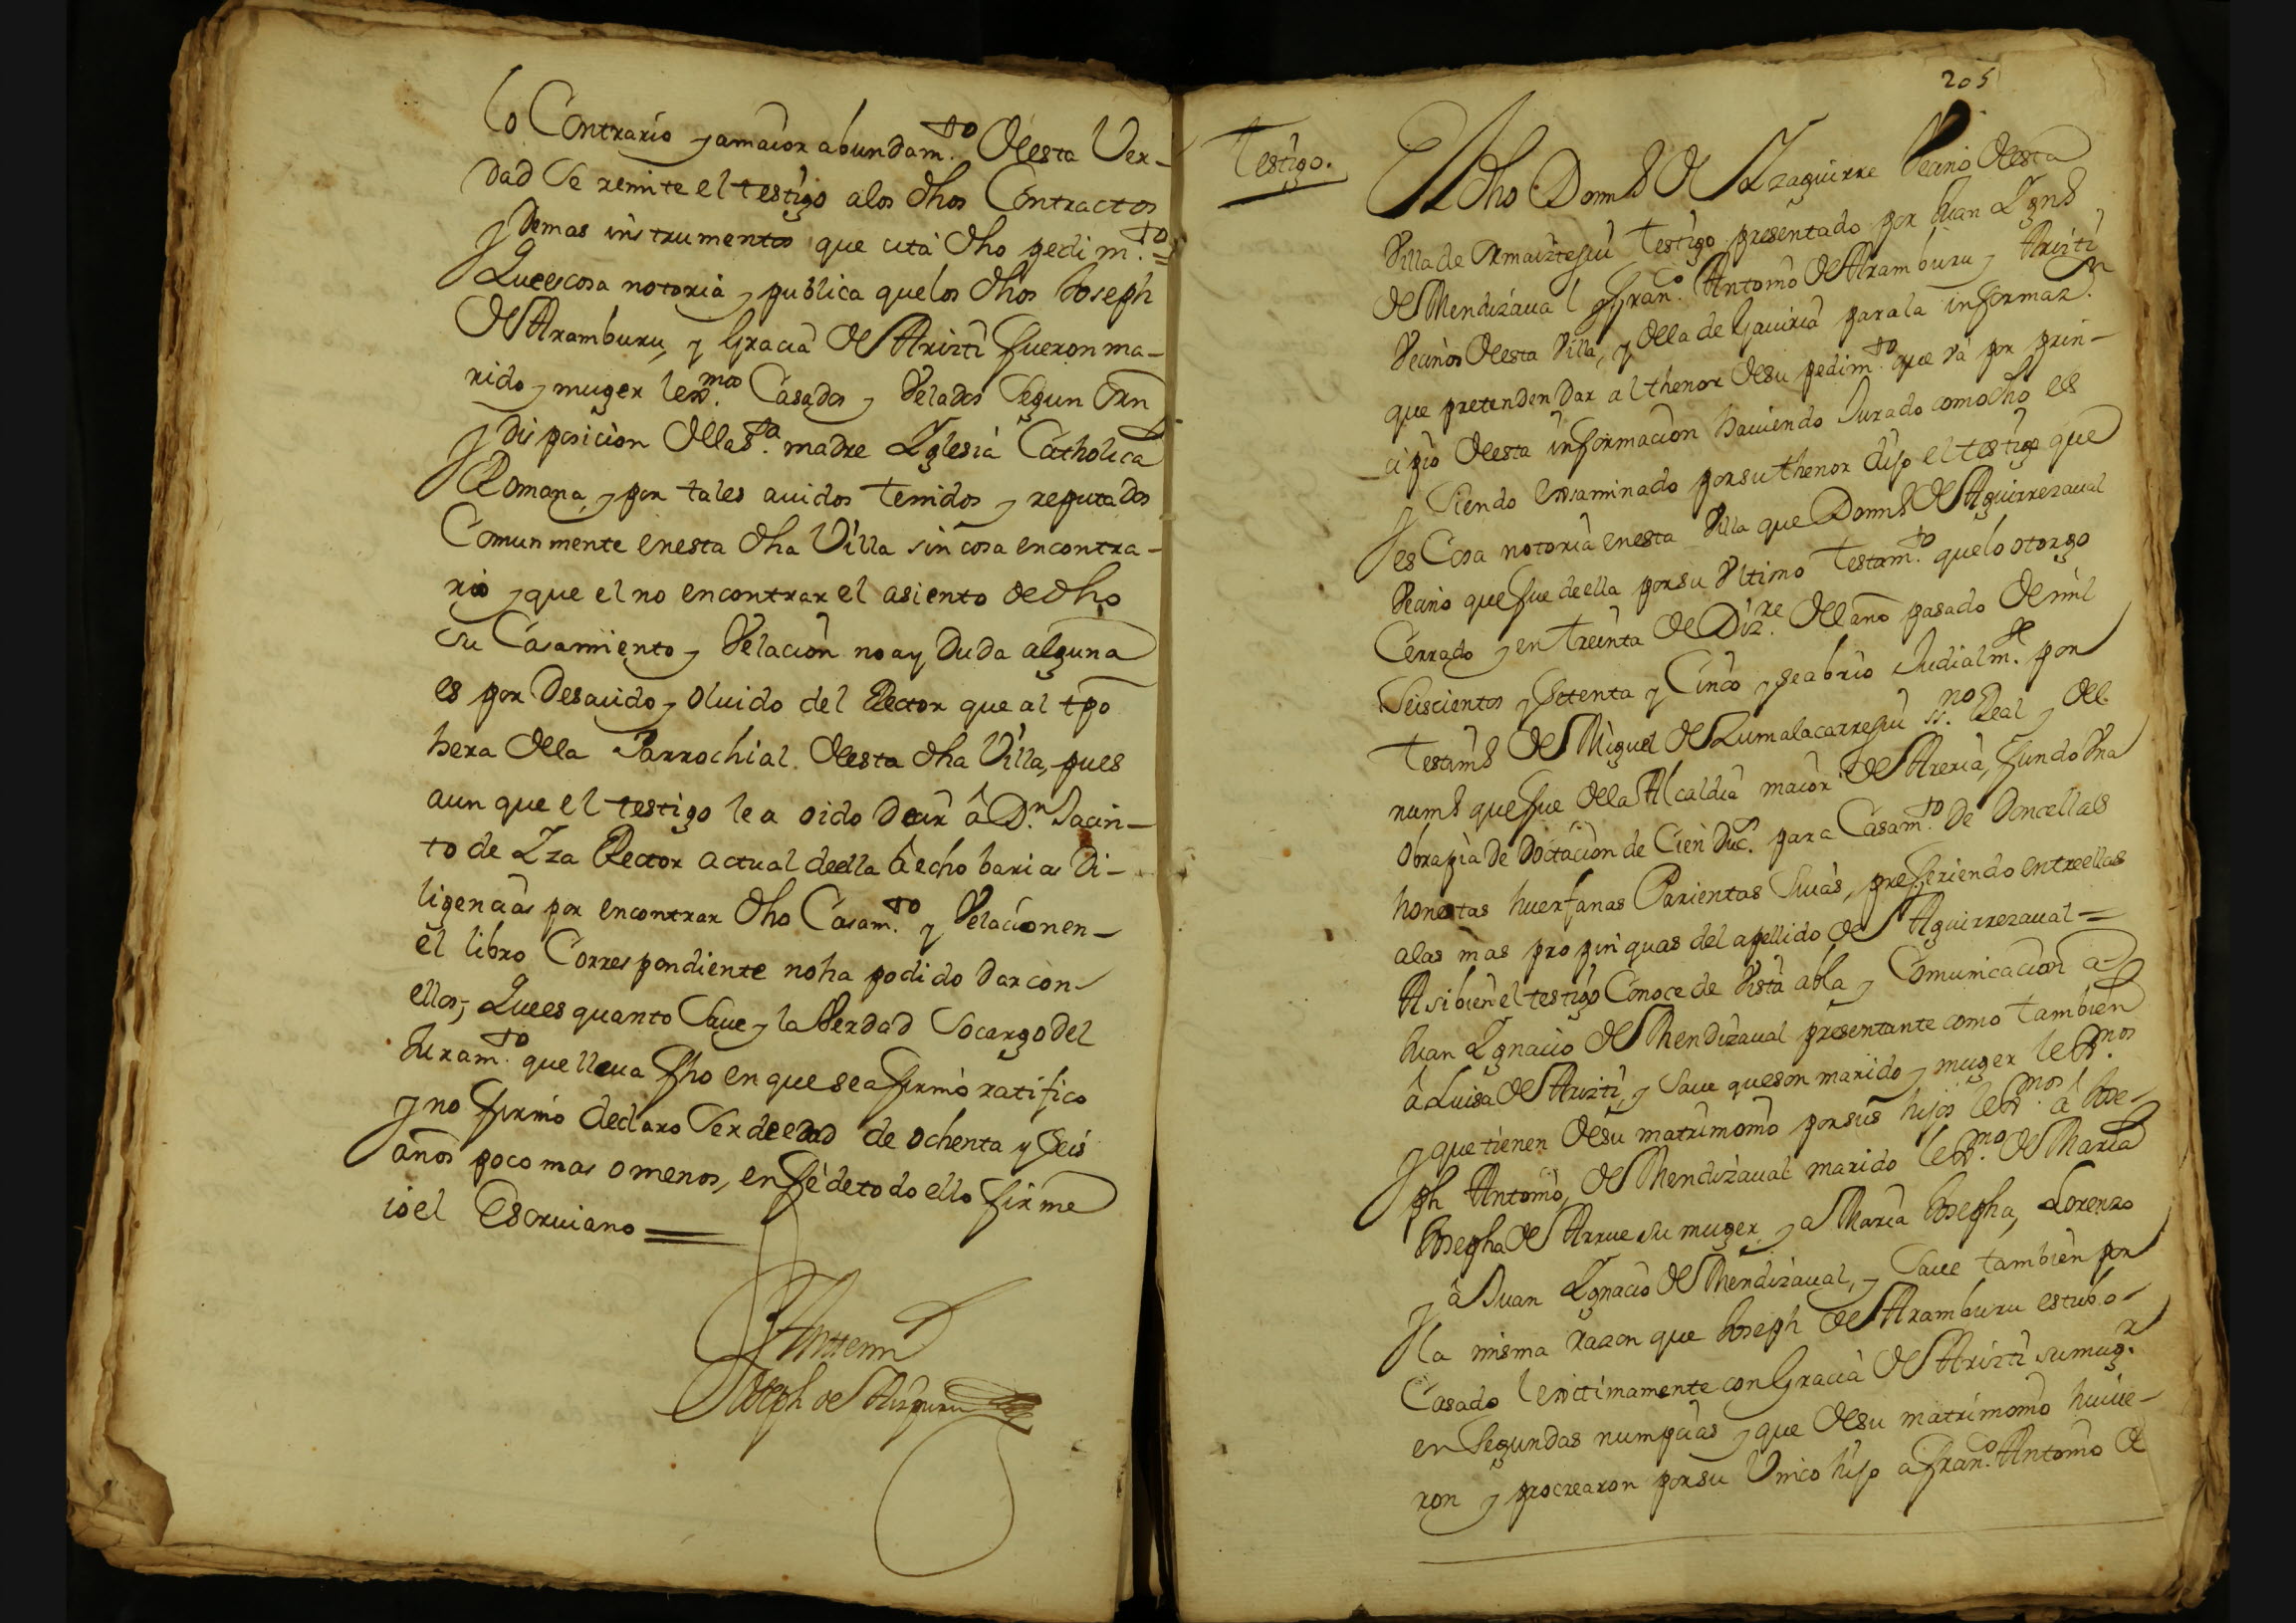 lo Contrario y amaior abundam.to desta Ver-
dad se remite el testigo alos dhos Contractos
y demas instrumentos que cita dho pedim.to =
Que es cosa notoria y publica quelos dhos Joseph
de Aramburu, y Gracia de Arizti fueron ma-
rido y muger lex.mos Casados y Velados segun orn
y disposicion dela s.ta madre Yglesia Catholica
Romana, y por tales auidos tenidos y reputados
Comunmente enesta dha Villa sin cosa encontra-
rio y que el no encontrar el asiento de dho
su Casamiento y Velacion no ay duda alguna
es por descuido y oluido del Rector que al tpo
hera dela Parrochial desta dha Villa, pues
aun que el testigo le a oido decir â D.n Jacin-
to de Yza Rector actual deella â echo barias di-
ligencias por encontrar dho Casam.to y Velacion en-
el libro Correspondiente no ha podido dar con-
ellos, Que es quanto saue y la Verdad so cargo del
Juram.to que lleua fho en que se afirmo ratifico
y no firmo declaro ser de edad de ochenta y seis
años poco mas o menos, en fè de todo ello firme
io el Escriuano =
Antemi
Joseph de Aizpuru
205
Testigo.
El dho Dom.o de Yzaguirre Vecino desta
Villa de Ormaiztegui testigo presentado por Juan Ygn.o
de Mendizaual y Fran.co Antonio de Aramburu y Arizti
Vecinos desta Villa, y dela de Gauiria para la informaz.n
que pretenden dar al thenor desu pedim.to que và por prin-
cipio desta informacion hauiendo Jurado como dho es
y siendo exsaminado por su thenor dijo el testigo que
es Cosa notoria enesta Villa que Dom.o de Aguirrezaual
Vecino que fue de ella por su Vltimo testam.to quelo otorgo
Cerrado y en treinta de Diz.re del año pasado de mil
seiscientos y setenta y Cinco y se abrio Judialm.te por
testim.o de Miguel de Zumalacarregui ss.no Real y del
num.o que fue dela Alcaldia maior de Areria, fundo Vna
obrapia de dotacion de Cien duc.s para Casam.to de doncellas
honestas huerfanas Parientas suias, prefiriendo entreellas
alas mas propinquas del apellido de Aguirrezaual =
Asi bien el testigo Conoce de Vista abla y Comunicacion a
Juan Ygnacio de Mendizaual presentante como tambien
â Luisa de Arizti, y saue que son marido y muger lex.mos
y que tienen desu matrimonio por sus hijos lex.mos â Jose-
ph Antonio, de Mendizaual marido lex.mo de Maria
Josepha de Arrue su muger, y a Maria Josepha, Lorenzo
y â Juan Ygnacio de Mendizaual, y saue tambien por
la misma razon que Joseph de Aramburu estubo
Casado lexitimamente con Gracia de Arizti su mug.r
en segundas numpcias y que desu matrimonio huuie-
ron y procrearon por su Vnico hijo a Fran.co Antonio de